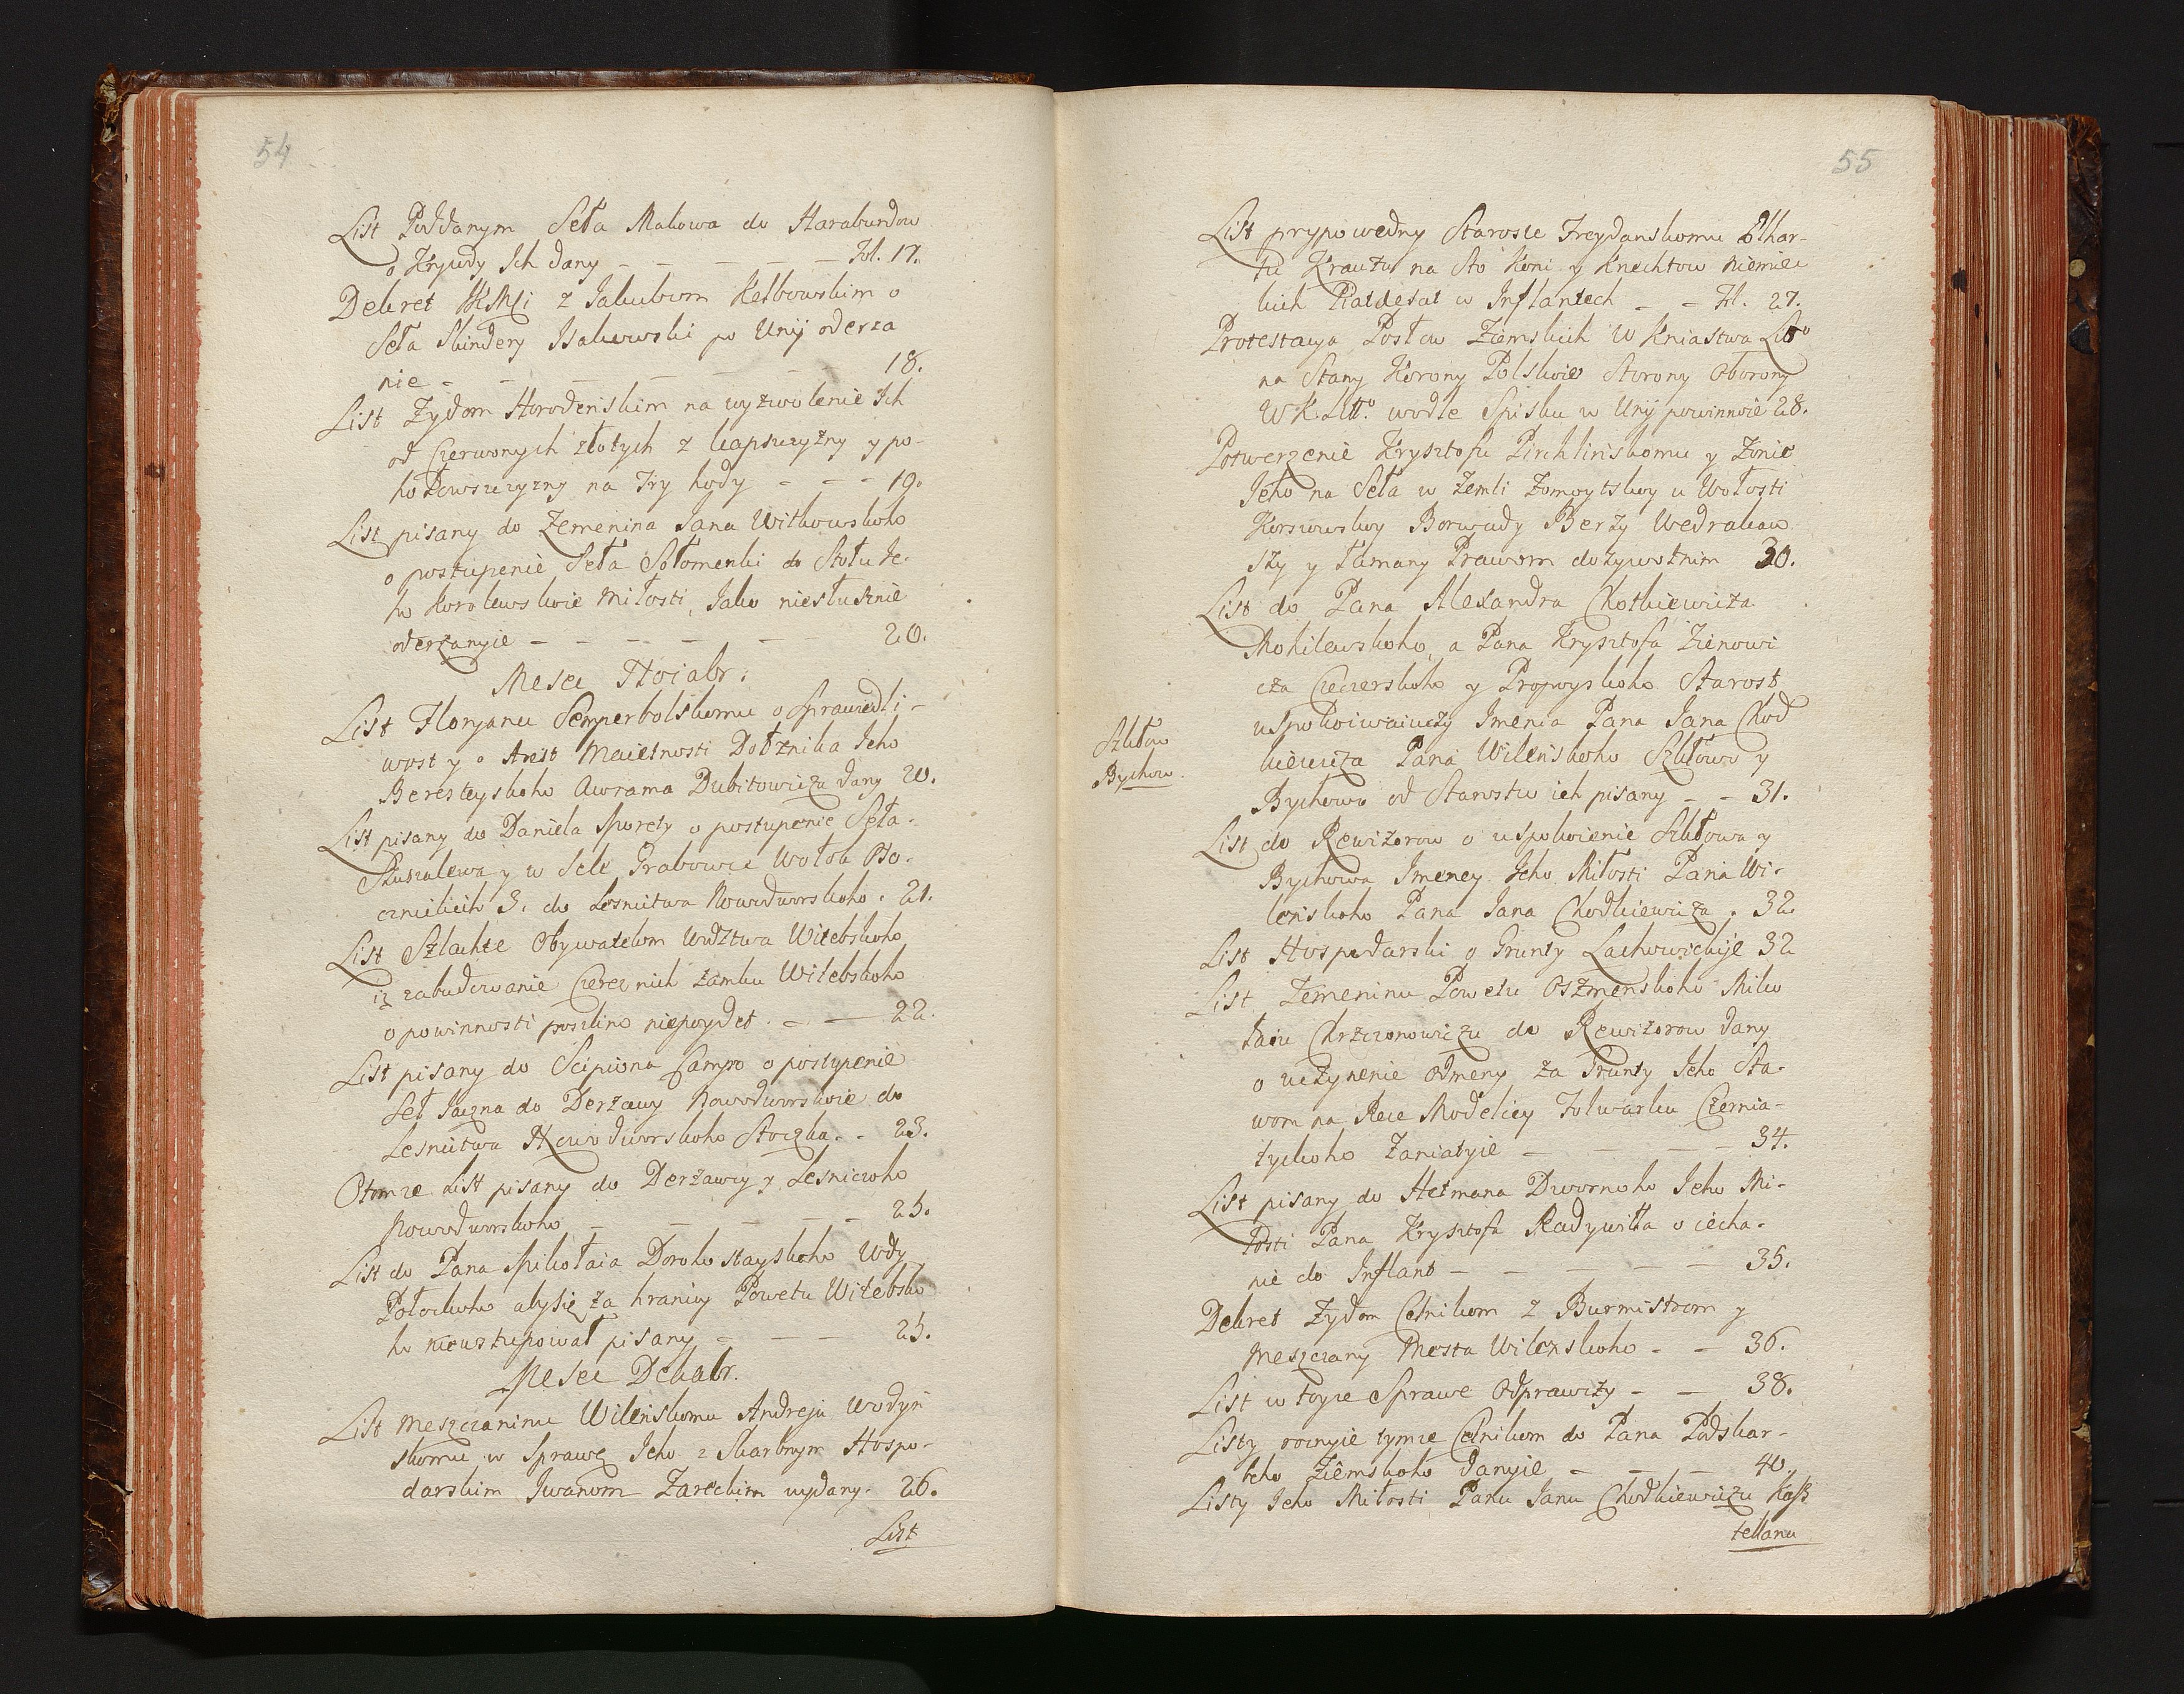 54
List Poddanym Seła Makowa do Haraburdow
o Krywdy Ich dany – – – – – Fol. 17.
Dekret JKMCi z Jakubom Kelbowskim o
Seła Skindery Isakowski po Unij oderza
nie – – – – – – 18.
List Zydom Horodenskim na wyzwolenie Ich
od Czerwonych złotych z kapszczyzny y po-
hołowszczyzny na Try hody – – – 19.
List pisany do Zemenina Jana Witkowskoho
o postupenie Seła Sołomenki do Stołu Je-
ho Korolewskoie Miłosti, Jako niesłusznie
oderzanyie – – – – – 20.
Mesec Nojabr:
List Floryanu Semperbolskomu o Sprawedli-
wost y o Arest Maietnosti Dołznika Jeho
Beresteyskoho Awrama Dubitowicza dany 20.
List pisany do Daniela Sporety o postupenie Seła
Suszalewa y w Sele Grabowie Wołok Bo-
cznickich 3. do Lesnictwa Nowodworskoho. 21.
List Szlachte Obywatelom Wodztwa Witebskoho
iz zabudowanie Czerez nich Zamku Witebskoho
o powinnosti poszlino niepoydet. – – 22.
List pisany do Scipiona Campo o postupenie
Seł Jaczna do Derzawy Nowodworskoie do
Lesnictwa Nowodworskoho Stoczka. – 23.
Otomze List pisany do Derzawcy y Lesniczoho
Nowodworskoho – – – – – 25.
List do Pana Mikołaia Dorohostayskoho Wdy
Połockoho aby się za hranicy Powetu Witebsko
ho niewstupował pisany – – – 25.
Mesec Dekabr.
List Meszczaninu Wilenskomu Andreju Wodyn
skomu w Sprawe Jeho z Skarbnym Hospo-
darskim Jwanom Zareckim wydany. 26.
List
55
List prypowedny Staroste Treydanskomu Elhar-
tu Krauzu na Sto Koni y Knechtow Niemiec
kich Piatdesat w Inflantech – – Fol. 27.
Protestacya Posłow Ziemskich W Kniastwa Litto
na Stany Korony Polskoie Storony Oborony
W K. Litto. wodle Spisku w Unij powinnoie 28.
Potwerzenie Krysztofu Pirchlinskomu y Zonie
Jeho na Seła w Zemli Zomoytskoy u Wołosti
Korszowskoy Borwudy Berzy Wedrakow
szy y Łamany Prawom dozywotnim 30.
List do Pana Alexandra Chotkiewicza
Mohilewskoho, a Pana Krysztofa Zienowi
cza Czeczerskoho y Propoyskoho Starost
uspokoiwaiuczy Imenia Pana Jana Chod
kiewicza Pana Wilenskoho Szkłowo y
Bychowo od Starostw ich pisany – – 31.
Szkłow
Bychow.
List do Rewizorow o uspokoienie Szkłowa y
Bychowa Imeney Jeho Miłosti Pana Wi-
lenskoho Pana Jana Chodkiewicza. 32.
List Hospodarski o Grunty Lachowickije 32
List Zemeninu Powetu Oszmenskoho Miko
łaiu Chrzczonowiczu do Rewizorow dany
o uczynenie Odmeny za Grunty Jeho Sta-
wom na Rece Modelicy Folwarku Czernia-
tyckoho Zaniatyie – – – – 34.
List pisany do Hetmana Dwornoho Jeho Mi-
łosti Pana Krysztofa Radywiłła o iecha-
nie do Inflant – – – – – 35.
Dekret Zydom Celnikom z Burmistrom y
Meszczany Mesta Wilenskoho – – 36.
List w toyze Sprawe Odprawczy – – 38.
Listy rocznyie tymze Celnikom do Pana Podskar-
beho Ziemskoho danyie – – – 40.
Listy Jeho Miłosti Panu Janu Chodkiewiczu Kasz
tellanu